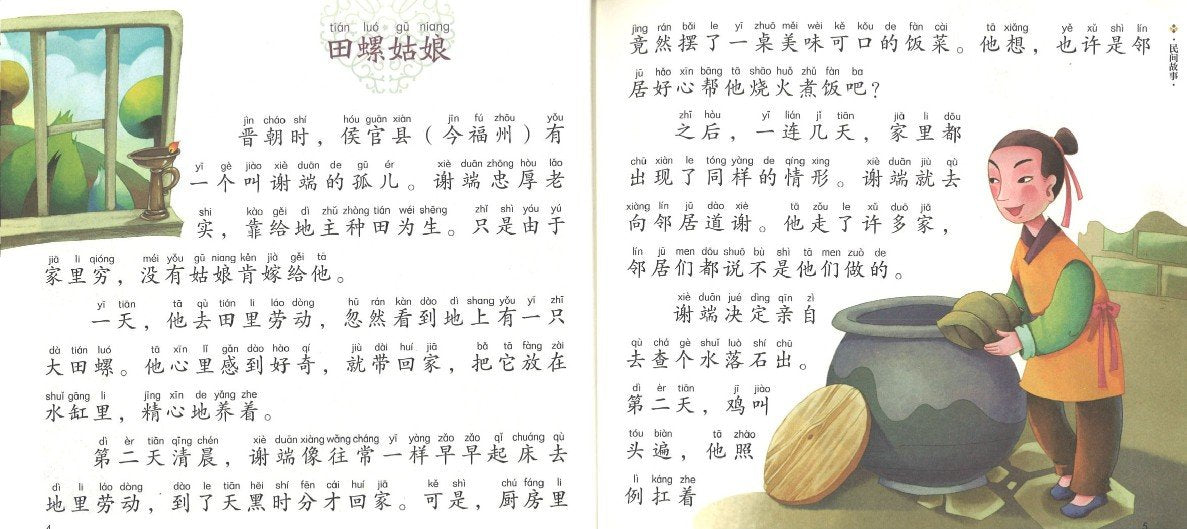 tián luó gū niang
田螺姑娘
jìn cháo shí hóu guān xiàn jīn fú zhōu yǒu
晋朝时，侯官县（今福州）有
yí gè jiào xiè duān de gū ér xiè duān zhōng hòu lǎo
一个叫谢端的孤儿。谢端忠厚老
shi kào gěi dì zhǔ zhòng tián wéi shēng zhǐ shì yóu yú
实，靠给地主种田为生。只是由于
jiā li qióng méi yǒu gū niang kěn jià gěi tā
家里穷，没有姑娘肯嫁给他。
yī tiān tā qù tián li láo dòng hū rán kàn dào dì shang yǒu yī zhī
一天，他去田里劳动，忽然看到地上有一只
dà tián luó tā xīn lǐ gǎn dào hào qí jiù dài huí jiā bǎ tā fàng zài
大田螺。他心里感到好奇，就带回家，把它放在
shuǐ gāng li jīng xīn de yǎng zhe
水缸里，精心地养着。
dì èr tiān qīng chén xiè duān xiàng wǎng cháng yī yàng zǎo zǎo qǐ chuáng qù
第二天清晨，谢端像往常一样早早起床去
dì li láo dòng dào le tiān hēi shí fēn cái huí jiā kě shì chú fáng li
地里劳动，到了天黑时分才回家。可是，厨房里
4
jìng rán bǎi le yī zhuō měi wèi kě kǒu de fàn cài tā xiǎng yě xǔ shì lín
竟然摆了一桌美味可口的饭菜。他想，也许是邻
jū hǎo xīn bāng tā shāo huǒ zhǔ fàn ba
居好心帮他烧火煮饭吧？
zhī hòu yī lián jǐ tiān jiā li dōu
之后，一连几天，家里都
chū xiàn le tóng yàng de qíng xing xiè duān jiù qù
出现了同样的情形。谢端就去
xiàng lín jū dào xiè tā zǒu le xǔ duō jiā
向邻居道谢。他走了许多家，
lín jū men dōu shuō bù shì tā men zuò de
邻居们都说不是他们做的。
xiè duān jué dìng qīn zì
谢端决定亲自
qù chá gè shuǐ luò shí chū
去查个水落石出。
dì èr tiān jī jiào
第二天，鸡叫
tóu biàn tā zhào
头遍，他照
lì káng zhe
例扛着
·民间故事·
5